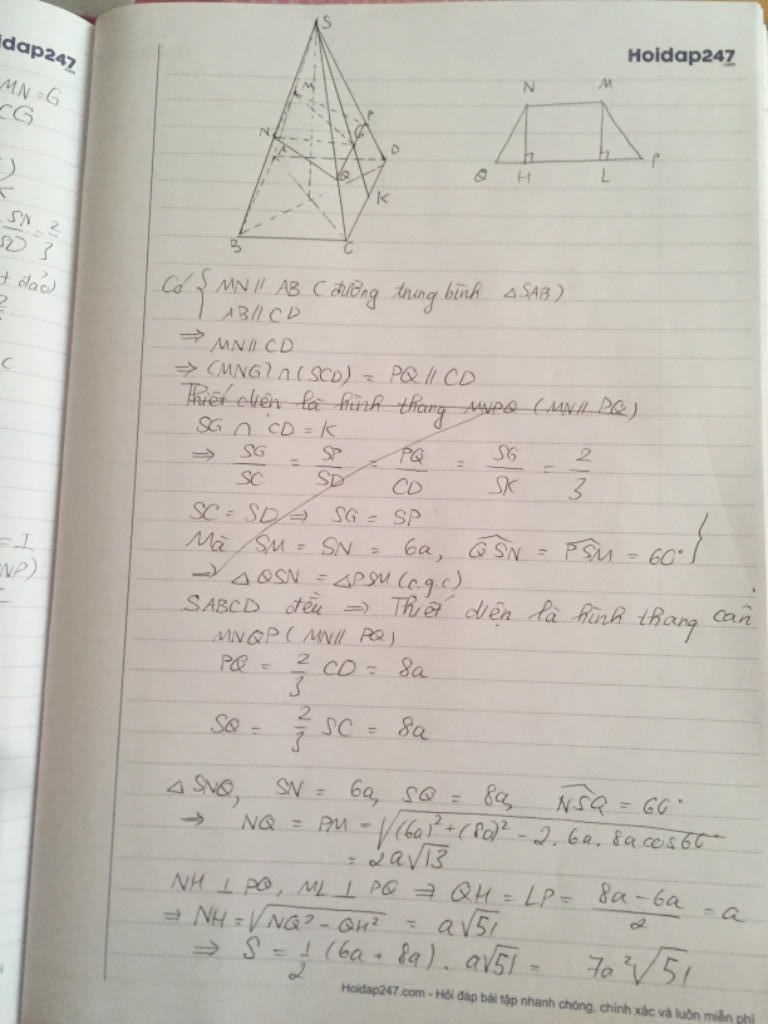 Hoidap247
Hoidap247
MN = G
CG
SN/SD = 2/3
S
M
N
P
G
A
D
Q
K
B
C
N M
Q H L P
Có { MN // AB (đường trung bình △SAB)
AB // CD
⇒ MN // CD
⇒ (MNG) ∩ (SCD) = PQ // CD
Thiết diện là hình thang MNPQ (MN // PQ)
SG ∩ CD = K
⇒ SG/SC = SP/SD = PQ/CD = SG/SK = 2/3
SC = SD ⇒ SG = SP
Mà SM = SN = 6a, QSN = PSM = 60° }
→ △QSN = △PSM (c.g.c)
SABCD đều ⇒ Thiết diện là hình thang cân
MNQP (MN // PQ)
PQ = 2/3 CD = 8a
SQ = 2/3 SC = 8a
△SNQ, SN = 6a, SQ = 8a, NSQ = 60°
→ NQ = PM = √((6a)² + (8a)² - 2.6a.8a cos60°
= 2a√13
NH ⊥ PQ, ML ⊥ PQ ⇒ QH = LP = (8a - 6a)/2 = a
⇒ NH = √(NQ² - QH²) = a√51
⇒ S = 1/2 (6a + 8a) . a√51 = 7a²√51
Hoidap247.com - Hỏi đáp bài tập nhanh chóng, chính xác và luôn miễn phí